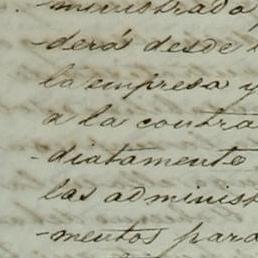 ministrado
derá desde
la empresa y
a la contra
-diatamente
las administ
-mentos para